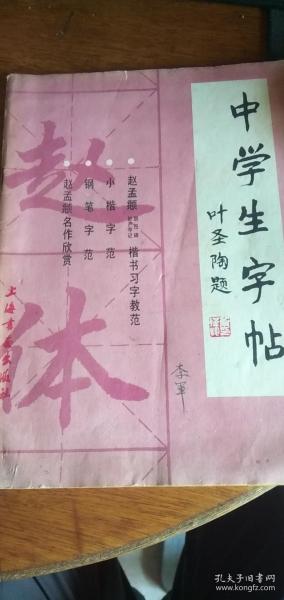 中学生字帖
叶圣陶题
赵孟頫楷书习字教范
小楷字范
钢笔字范
赵孟頫名作欣赏
赵体
上海书画出版社
李军
孔夫子旧书网
kongfz.com